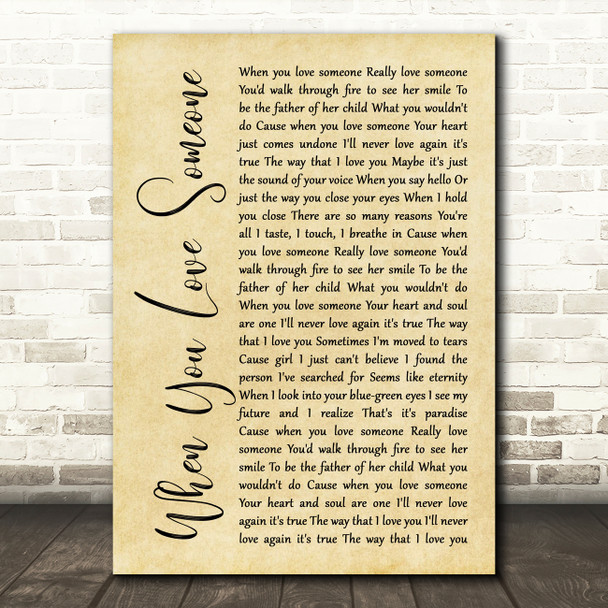 When You Love Someone
When you love someone Really love someone
You'd walk through fire to see her smile To
be the father of her child What you wouldn't
do Cause when you love someone Your heart
just comes undone I'll never love again it's
true The way that I love you Maybe it's just
the sound of your voice When you say hello Or
just the way you close your eyes When I hold
you close There are so many reasons You're
all I taste, I touch, I breathe in Cause when
you love someone Really love someone You'd
walk through fire to see her smile To be the
father of her child What you wouldn't do
When you love someone Your heart and soul
are one I'll never love again it's true The way
that I love you Sometimes I'm moved to tears
Cause girl I just can't believe I found the
person I've searched for Seems like eternity
When I look into your blue-green eyes I see my
future and I realize That's it's paradise
Cause when you love someone Really love
someone You'd walk through fire to see her
smile To be the father of her child What you
wouldn't do Cause when you love someone
Your heart and soul are one I'll never love
again it's true The way that I love you I'll never
love again it's true The way that I love you